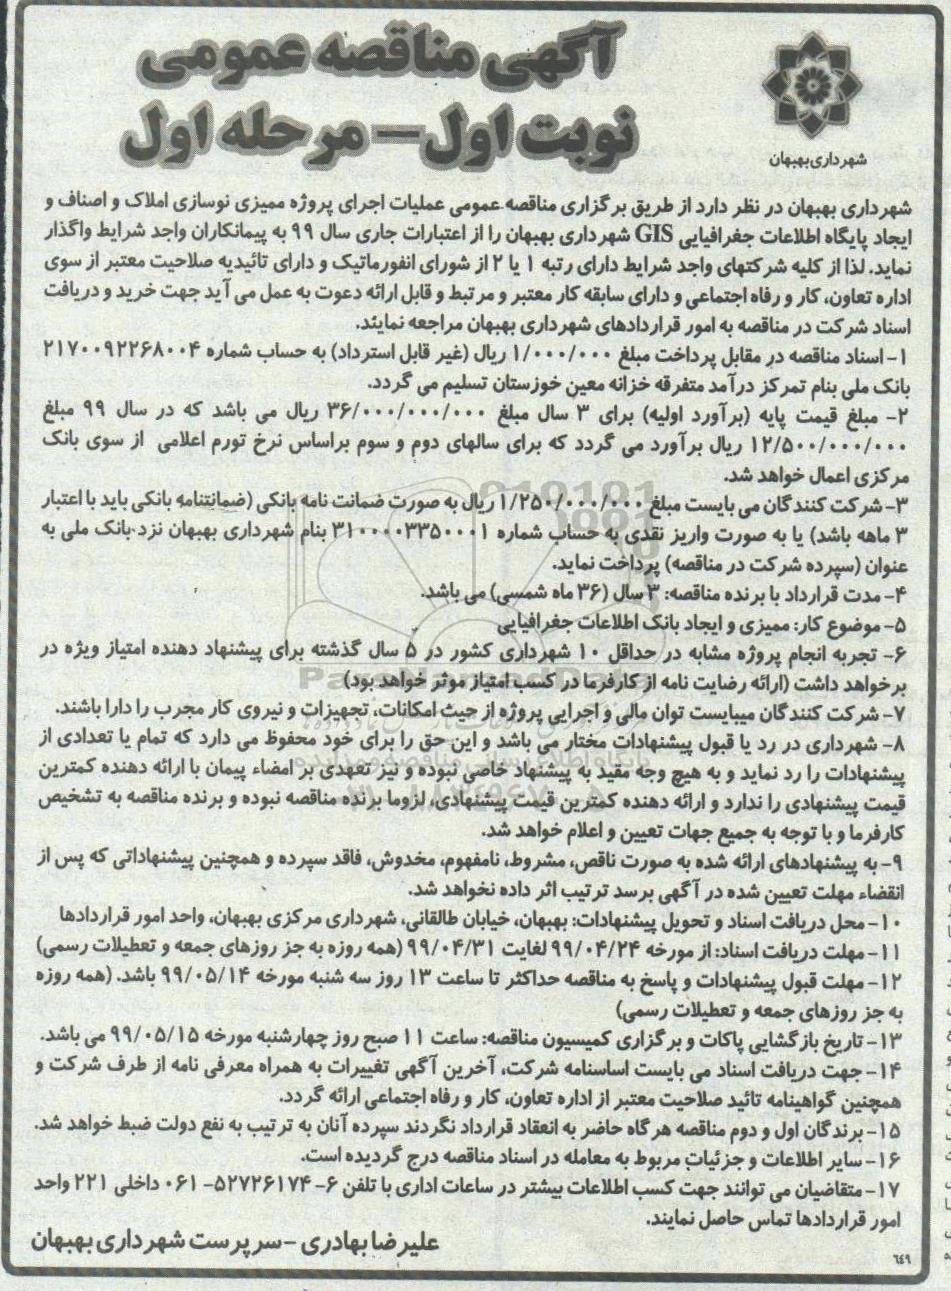 آگهی مناقصه عمومی
نوبت اول – مرحله اول
شهرداری بهبهان
شهرداری بهبهان در نظر دارد از طریق برگزاری مناقصه عمومی عملیات اجرای پروژه ممیزی نوسازی املاک و اصناف و
ایجاد پایگاه اطلاعات جغرافیایی GIS شهرداری بهبهان را از اعتبارات جاری سال ۹۹ به پیمانکاران واجد شرایط واگذار
نماید. لذا از کلیه شرکتهای واجد شرایط دارای رتبه ۱ یا ۲ از شورای انفورماتیک و دارای تائیدیه صلاحیت معتبر از سوی
اداره تعاون، کار و رفاه اجتماعی و دارای سابقه کار معتبر و مرتبط و قابل ارائه دعوت به عمل می آید جهت خرید و دریافت
اسناد شرکت در مناقصه به امور قراردادهای شهرداری بهبهان مراجعه نمایند.
۱- اسناد مناقصه در مقابل پرداخت مبلغ ۱/۰۰۰/۰۰۰ ریال (غیر قابل استرداد) به حساب شماره ۲۱۷۰۰۹۲۲۶۸۰۰۴
بانک ملی بنام تمرکز درآمد متفرقه خزانه معین خوزستان تسلیم می گردد.
۲- مبلغ قیمت پایه (برآورد اولیه) برای ۳ سال مبلغ ۳۶/۰۰۰/۰۰۰/۰۰۰ ریال می باشد که در سال ۹۹ مبلغ
۱۲/۵۰۰/۰۰۰/۰۰۰ ریال برآورد می گردد که برای سالهای دوم و سوم براساس نرخ تورم اعلامی از سوی بانک
مرکزی اعمال خواهد شد.
۳- شرکت کنندگان می بایست مبلغ ۱/۲۵۰/۰۰۰/۰۰۰ ریال به صورت ضمانت نامه بانکی (ضمانتنامه بانکی باید با اعتبار
۳ ماهه باشد) یا به صورت واریز نقدی به حساب شماره ۳۱۰۰۰۰۳۳۵۰۰۰۱ بنام شهرداری بهبهان نزد بانک ملی به
عنوان (سپرده شرکت در مناقصه) پرداخت نماید.
۴- مدت قرارداد با برنده مناقصه: ۳ سال (۳۶ ماه شمسی) می باشد.
۵- موضوع کار: ممیزی و ایجاد بانک اطلاعات جغرافیایی
۶- تجربه انجام پروژه مشابه در حداقل ۱۰ شهرداری کشور در ۵ سال گذشته برای پیشنهاد دهنده امتیاز ویژه در
برخواهد داشت (ارائه رضایت نامه از کارفرما در کسب امتیاز موثر خواهد بود)
۷- شرکت کنندگان میبایست توان مالی و اجرایی پروژه از حیث امکانات، تجهیزات و نیروی کار مجرب را دارا باشند.
۸- شهرداری در رد یا قبول پیشنهادات مختار می باشد و این حق را برای خود محفوظ می دارد که تمام یا تعدادی از
پیشنهادات را رد نماید و به هیچ وجه مقید به پیشنهاد خاصی نبوده و نیز تعهدی بر امضاء پیمان با ارائه دهنده کمترین
قیمت پیشنهادی را ندارد و ارائه دهنده کمترین قیمت پیشنهادی، لزوما برنده مناقصه نبوده و برنده مناقصه به تشخیص
کارفرما و با توجه به جمیع جهات تعیین و اعلام خواهد شد.
۹- به پیشنهادهای ارائه شده به صورت ناقص، مشروط، نامفهوم، مخدوش، فاقد سپرده و همچنین پیشنهاداتی که پس از
انقضاء مهلت تعیین شده در آگهی برسد ترتیب اثر داده نخواهد شد.
۱۰- محل دریافت اسناد و تحویل پیشنهادات: بهبهان، خیابان طالقانی، شهرداری مرکزی بهبهان، واحد امور قراردادها
۱۱- مهلت دریافت اسناد: از مورخه ۹۹/۰۴/۲۴ لغایت ۹۹/۰۴/۳۱ (همه روزه به جز روزهای جمعه و تعطیلات رسمی)
۱۲- مهلت قبول پیشنهادات و پاسخ به مناقصه حداکثر تا ساعت ۱۳ روز سه شنبه مورخه ۹۹/۰۵/۱۴ باشد. (همه روزه
به جز روزهای جمعه و تعطیلات رسمی)
۱۳- تاریخ بازگشایی پاکات و برگزاری کمیسیون مناقصه: ساعت ۱۱ صبح روز چهارشنبه مورخه ۹۹/۰۵/۱۵ می باشد.
۱۴- جهت دریافت اسناد می بایست اساسنامه شرکت، آخرین آگهی تغییرات به همراه معرفی نامه از طرف شرکت و
همچنین گواهینامه تائید صلاحیت معتبر از اداره تعاون، کار و رفاه اجتماعی ارائه گردد.
۱۵- برندگان اول و دوم مناقصه هرگاه حاضر به انعقاد قرارداد نگردند سپرده آنان به ترتیب به نفع دولت ضبط خواهد شد.
۱۶- سایر اطلاعات و جزئیات مربوط به معامله در اسناد مناقصه درج گردیده است.
۱۷- متقاضیان می توانند جهت کسب اطلاعات بیشتر در ساعات اداری با تلفن ۶-۵۲۷۲۶۱۷۴-۰۶۱ داخلی ۲۲۱ واحد
امور قراردادها تماس حاصل نمایند.
علیرضا بهادری - سرپرست شهرداری بهبهان
۶۴۹